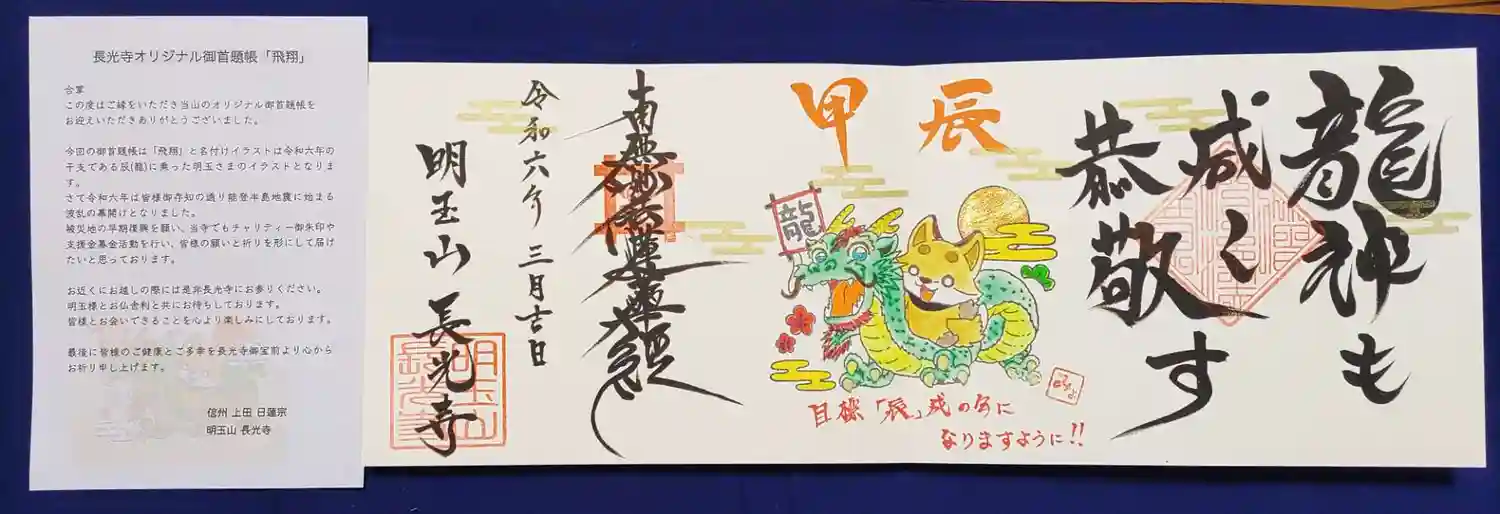 長光寺オリジナル御首題帳「飛翔」
合掌
この度はご縁をいただき当山のオリジナル御首題帳を
お迎えいただきありがとうございました。
今回の御首題帳は「飛翔」と名付けイラストは令和六年の
干支である辰(龍)に乗った明玉さまのイラストとなりま
す。
さて令和六年は皆様御存知の通り能登半島地震に始まる
波乱の幕開けとなりました。
被災地の早期復興を願い、当寺でもチャリティー御朱印や
支援金募金活動を行い、皆様の願いと祈りを形にして届け
たいと思っております。
お近くにお越しの際には是非長光寺にお参りください。
明玉様とお仏舎利と共にお待ちしております。
皆様とお会いできることを心より楽しみにしております。
最後に皆様のご健康とご多幸を長光寺御宝前より心から
お祈り申し上げます。
信州 上田 日蓮宗
明玉山 長光寺
龍神も
咸く
恭敬す
甲辰
龍
目標「辰」成の年に
なりますように!!
南無妙法蓮華経
令和六年 三月吉日
明玉山 長光寺
明玉山
長光寺